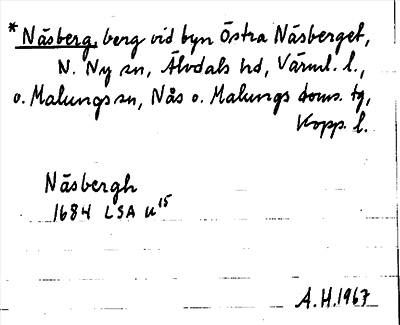 * Näsberg, berg vid byn Östra Näsberget,
N. Ny sn, Älvdals hd, Värml. l.,
o. Malungs sn, Nås o. Malungs doms. tg,
Kopp. l.
Näsbergh
1684 LSA u15
A.H. 1967